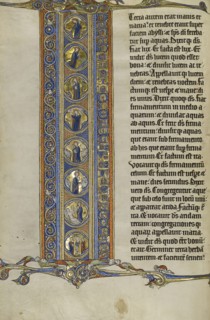 Terra autem erat inanis et
vacua: et tenebre erant super
faciem abyssi et spc dei fereba
tur super aquas. Dixitque ds.
Fiat lux. Et facta est lux. Et
vidit ds lucem quod esset
bona: et divisit lucem ac te
nebras. Appellavitque lucem
diem et tenebras noctem. Fa
ctumque est vespe et mane di
es unus. Dixit quoque ds. Fiat
firmamentum in medio a
quarum: et dividat aquas
ab aquis. Et fecit ds firma
mentum: divisitque aquas
que erant sub firmamento
ab his que erant super firma
mentum. Et factum est ita.
Vocavitque ds firmamentum
celum. Et factum est vespe et
mane: dies secundus. Dixit
vero ds. Congregentur aque
que sub celo sunt in locum unum
et appareat arida. Factumque
est ita. Et vocavit ds aridam
terram: congregationesque
aquarum appellavit maria.
Et vidit ds quod esset bonum
et ait. Germinet terra herbam
virentem et facientem semen: